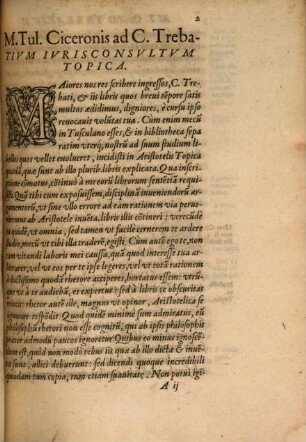 2
M. Tul. Ciceronis ad C. Treba-
TIVM IVRISCONSVLTVM
TOPICA.
MAiores nos res scribere ingressos, C. Tre-
bati, & iis libris quos breui tẽpore satis
multos ædidimus, digniores, è cursu ipso
reuocauit volũtas tua. Cum enim mecũ
in Tusculano esses, & in bibliotheca sepa
ratim vterq; nostrũ ad suum studium li-
bellos quos vellet euolueret, incidisti in Aristotelis Topica
quædã, quæ sunt ab illo plurib. libris explicata. Qua inscri
ptione cõmotus, cõtinuò à me eorũ librorum sentẽtiã requi
sisti. Quã tibi cum exposuissem, disciplinã inueniendorũ ar
gumentorũ, vt sine vllo errore ad eam rationem via perue-
niremus ab Aristotele inuẽta, libris illis cõtineri: verecũdè
tu quidẽ, vt omnia, sed tamen vt facilè cernerem te ardere
studio, mecũ vt tibi illa traderẽ, egisti. Cum autẽ ego te, non
tam vitandi laboris mei caussa, quã quod interesse tua ar-
bitrarer, vel vt eos per te ipse legeres, vel vt totã rationem
à doctissimo quodã rhetore acciperes, hortatus essem: vtrũ-
que vt ex te audiebã, es expertus: sed à libris te obscuritas
reiecit: rhetor autẽ ille, magnus vt opinor, Aristotelica se
ignorare respõdit. Quod quidẽ minimè sum admiratus, eũ
philosophũ rhetori non esse cognitũ, qui ab ipsis philosophis
præter admodũ paucos ignoretur. Quibus eo minus ignoscẽ-
dum est, quòd non modò rebus iis quæ ab illo dictæ & inuẽ
tæ sunt, allici debuerunt: sed dicendi quoque incredibili
quadam tum copia, tum etiam suauitate. Non potui igi-
A ij